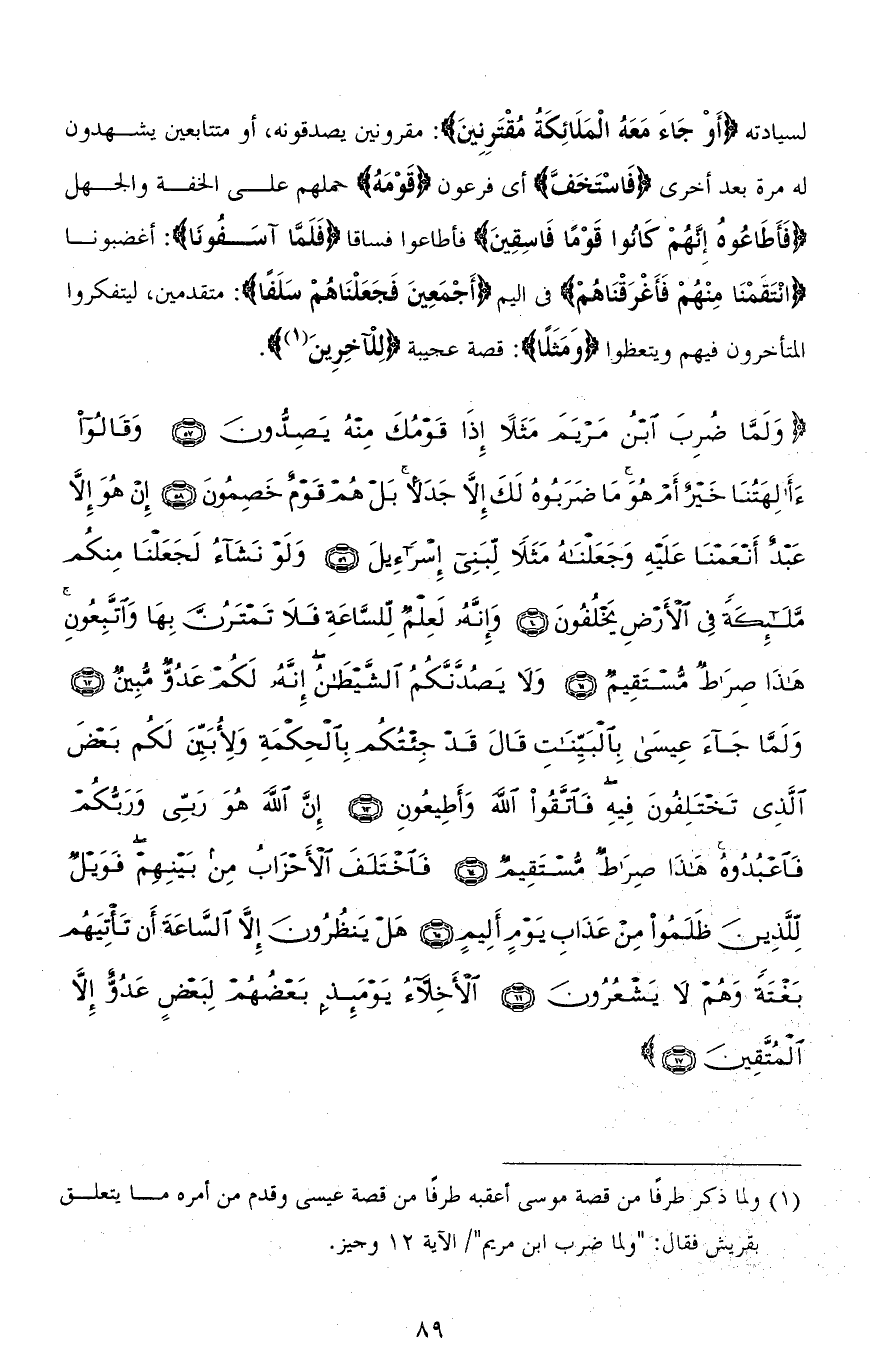 لسيادته ﴿أَوْ جَاءَ مَعَهُ الْمَلَائِكَةُ مُقْتَرِنِينَ﴾: مقرونين يصدقونه، أو متتابعين يشهدون
له مرة بعد أخرى ﴿فَاسْتَخَفَّ﴾ أى فرعون ﴿قَوْمَهُ﴾ حملهم على الخفة والجهل
﴿فَأَطَاعُوهُ إِنَّهُمْ كَانُوا قَوْمًا فَاسِقِينَ﴾ فأطاعوا فساقا ﴿فَلَمَّا آسَفُونَا﴾: أغضبونا
﴿انْتَقَمْنَا مِنْهُمْ فَأَغْرَقْنَاهُمْ﴾ فى اليم ﴿أَجْمَعِينَ فَجَعَلْنَاهُمْ سَلَفًا﴾: متقدمين، ليتفكروا
المتأخرون فيهم ويتعظوا ﴿وَمَثَلًا﴾: قصة عجيبة ﴿لِلْآخِرِينَ(١)﴾.
﴿وَلَمَّا ضُرِبَ ٱبْنُ مَرْيَمَ مَثَلًا إِذَا قَوْمُكَ مِنْهُ يَصِدُّونَ ٥٧ وَقَالُوٓا۟
ءَأَٰلِهَتُنَا خَيْرٌ أَمْ هُوَ ۚ مَا ضَرَبُوهُ لَكَ إِلَّا جَدَلًۢا ۚ بَلْ هُمْ قَوْمٌ خَصِمُونَ ٥٨ إِنْ هُوَ إِلَّا
عَبْدٌ أَنْعَمْنَا عَلَيْهِ وَجَعَلْنَٰهُ مَثَلًا لِّبَنِىٓ إِسْرَٰٓءِيلَ ٥٩ وَلَوْ نَشَآءُ لَجَعَلْنَا مِنكُم
مَّلَٰٓئِكَةً فِى ٱلْأَرْضِ يَخْلُفُونَ ٦٠ وَإِنَّهُۥ لَعِلْمٌ لِّلسَّاعَةِ فَلَا تَمْتَرُنَّ بِهَا وَٱتَّبِعُونِ ۚ
هَٰذَا صِرَٰطٌ مُّسْتَقِيمٌ ٦١ وَلَا يَصُدَّنَّكُمُ ٱلشَّيْطَٰنُ ۖ إِنَّهُۥ لَكُمْ عَدُوٌّ مُّبِينٌ ٦٢
وَلَمَّا جَآءَ عِيسَىٰ بِٱلْبَيِّنَٰتِ قَالَ قَدْ جِئْتُكُم بِٱلْحِكْمَةِ وَلِأُبَيِّنَ لَكُم بَعْضَ
ٱلَّذِى تَخْتَلِفُونَ فِيهِ ۖ فَٱتَّقُوا۟ ٱللَّهَ وَأَطِيعُونِ ٦٣ إِنَّ ٱللَّهَ هُوَ رَبِّى وَرَبُّكُمْ
فَٱعْبُدُوهُ ۚ هَٰذَا صِرَٰطٌ مُّسْتَقِيمٌ ٦٤ فَٱخْتَلَفَ ٱلْأَحْزَابُ مِنۢ بَيْنِهِمْ ۖ فَوَيْلٌ
لِّلَّذِينَ ظَلَمُوا۟ مِنْ عَذَابِ يَوْمٍ أَلِيمٍ ٦٥ هَلْ يَنظُرُونَ إِلَّا ٱلسَّاعَةَ أَن تَأْتِيَهُم
بَغْتَةً وَهُمْ لَا يَشْعُرُونَ ٦٦ ٱلْأَخِلَّآءُ يَوْمَئِذٍۭ بَعْضُهُمْ لِبَعْضٍ عَدُوٌّ إِلَّا
ٱلْمُتَّقِينَ ٦٧﴾
(١) ولما ذكر طرفًا من قصة موسى أعقبه طرفًا من قصة عيسى وقدم من أمره ما يتعلق
بقريش فقال: "ولما ضرب ابن مريم"/ الآية ١٢ وجيز.
٨٩